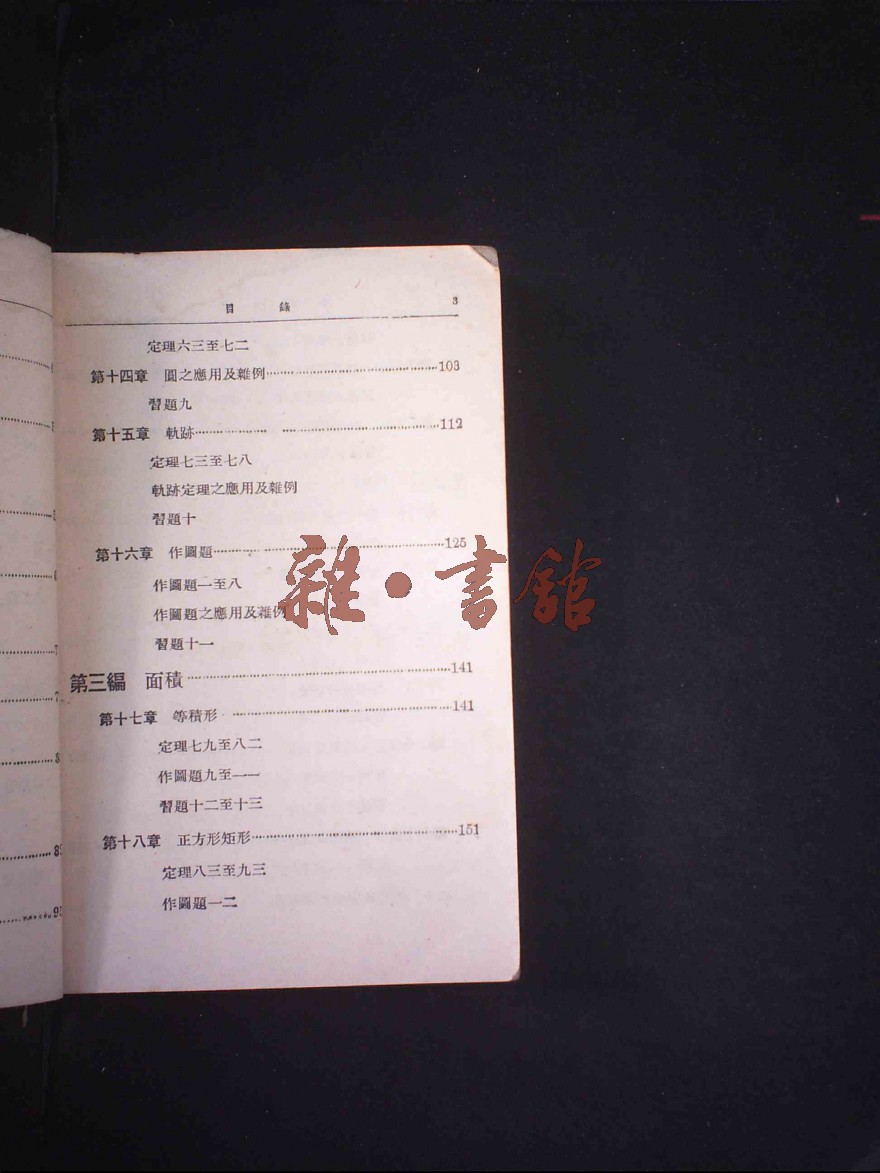 目 錄 3
定理六三至七二
第十四章 圓之應用及雜例……103
習題九
第十五章 軌跡……112
定理七三至七八
軌跡定理之應用及雜例
習題十
第十六章 作圖題……125
作圖題一至八
作圖題之應用及雜例
習題十一
第三編 面積……141
第十七章 等積形……141
定理七九至八二
作圖題九至一一
習題十二至十三
第十八章 正方形矩形……151
定理八三至九三
作圖題一二
雜·書館